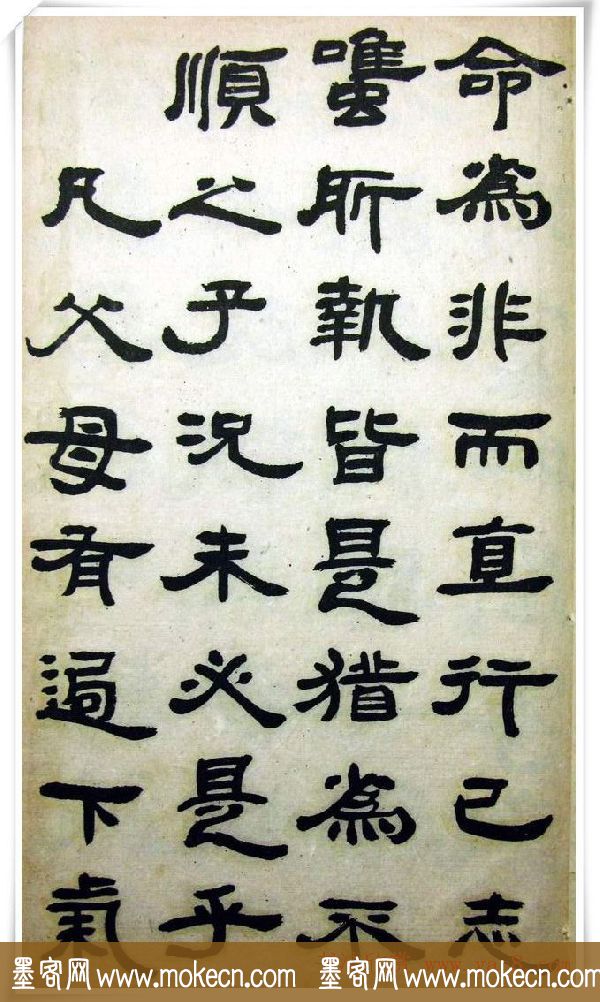 命為非而直行己志
雖所執皆是猶為不
順之子況未必是乎
凡父母有過下氣
墨客网 www.mokecn.com 墨客网 www.mokecn.com